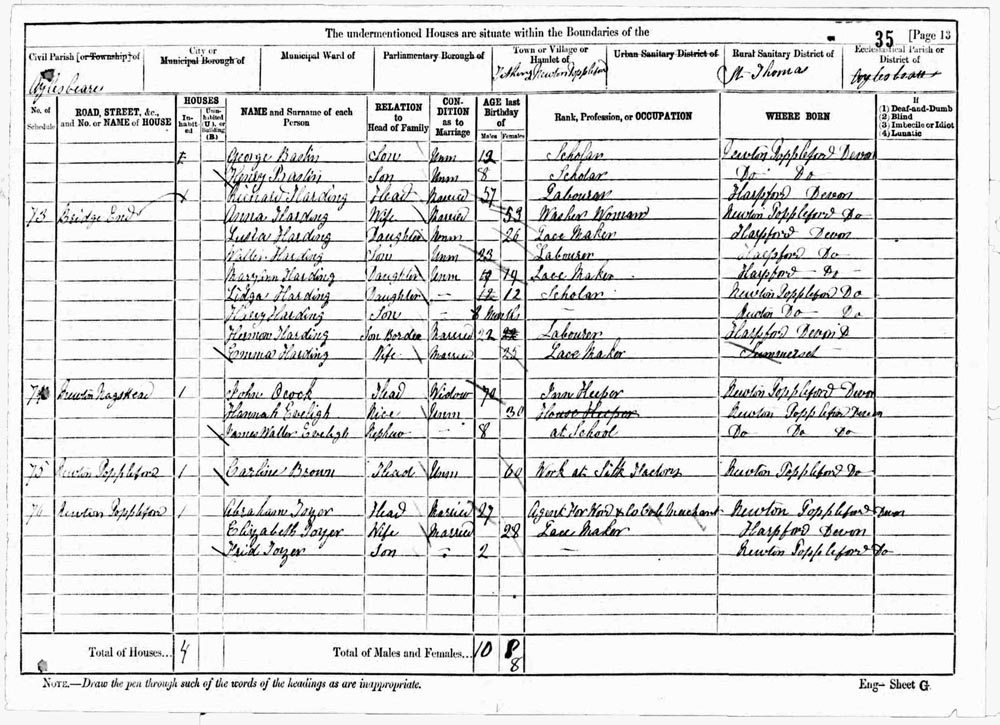 The undermentioned Houses are situate within the Boundaries of the
35 [Page 13
Civil Parish [or Township] of
City or Municipal Borough of
Municipal Ward of
Parliamentary Borough of
Town or Village or Hamlet of
Urban Sanitary District of
Rural Sanitary District of
Ecclesiastical Parish or District of
Aylesbeare
Tithing Newton Poppleford
St Thomas
Aylesbeare
No. of Schedule
ROAD, STREET, &c., and No. or NAME of HOUSE
HOUSES
Inhabited
Uninhabited (U.), or Building (B.)
NAME and Surname of each Person
RELATION to Head of Family
CONDITION as to Marriage
AGE last Birthday of
Males Females
Rank, Profession, or OCCUPATION
WHERE BORN
If
(1) Deaf-and-Dumb
(2) Blind
(3) Imbecile or Idiot
(4) Lunatic
George Baslin Son Unm 12 Scholar Newton Poppleford Devon
Henry Baslin Son Unm 8 Scholar Do Do
Richard Harding Head Married 57 Labourer Harpford Devon
73 Bridge End 1 Anna Harding Wife Married 53 Washer Woman Newton Poppleford Do
Harding Daughter Unm 26 Lace Maker Harpford Devon
Walter Harding Son Unm 23 Labourer Harpford Do
Maryann Harding Daughter Unm 19 19 Lace Maker Harpford Do
Lidga Harding Daughter — 12 12 Scholar Newton Poppleford Do
Harry Harding Son — 8 Months — Newton Do Do
Harding Son Border Married 22 22 Labourer Harpford Devon
Emma Harding Wife Married 25 Lace Maker Summerset
74 Newton Nags Head 1 John Ocock Head Widow 70 Inn Keeper Newton Poppleford Devon
Hannah Eveligh Niece Unm 30 House Keeper Newton Poppleford Devon
James Walter Eveligh Nephew — 8 at School Do Do Do
75 Newton Poppleford 1 Carline Brown Head Unm 60 Work at Silk Factory Newton Poppleford Do
76 Newton Poppleford 1 Abraham Tozer Head Married 27 Agent For & Co Merchant Newton Poppleford Devon
Elizabeth Tozer Wife Married 28 Lace Maker Harpford Devon
Frid Tozer Son — 2 — Newton Poppleford Do
Total of Houses... 4
Total of Males and Females... 10 8
8
NOTE.—Draw the pen through such of the words of the headings as are inappropriate.
Eng— Sheet G.